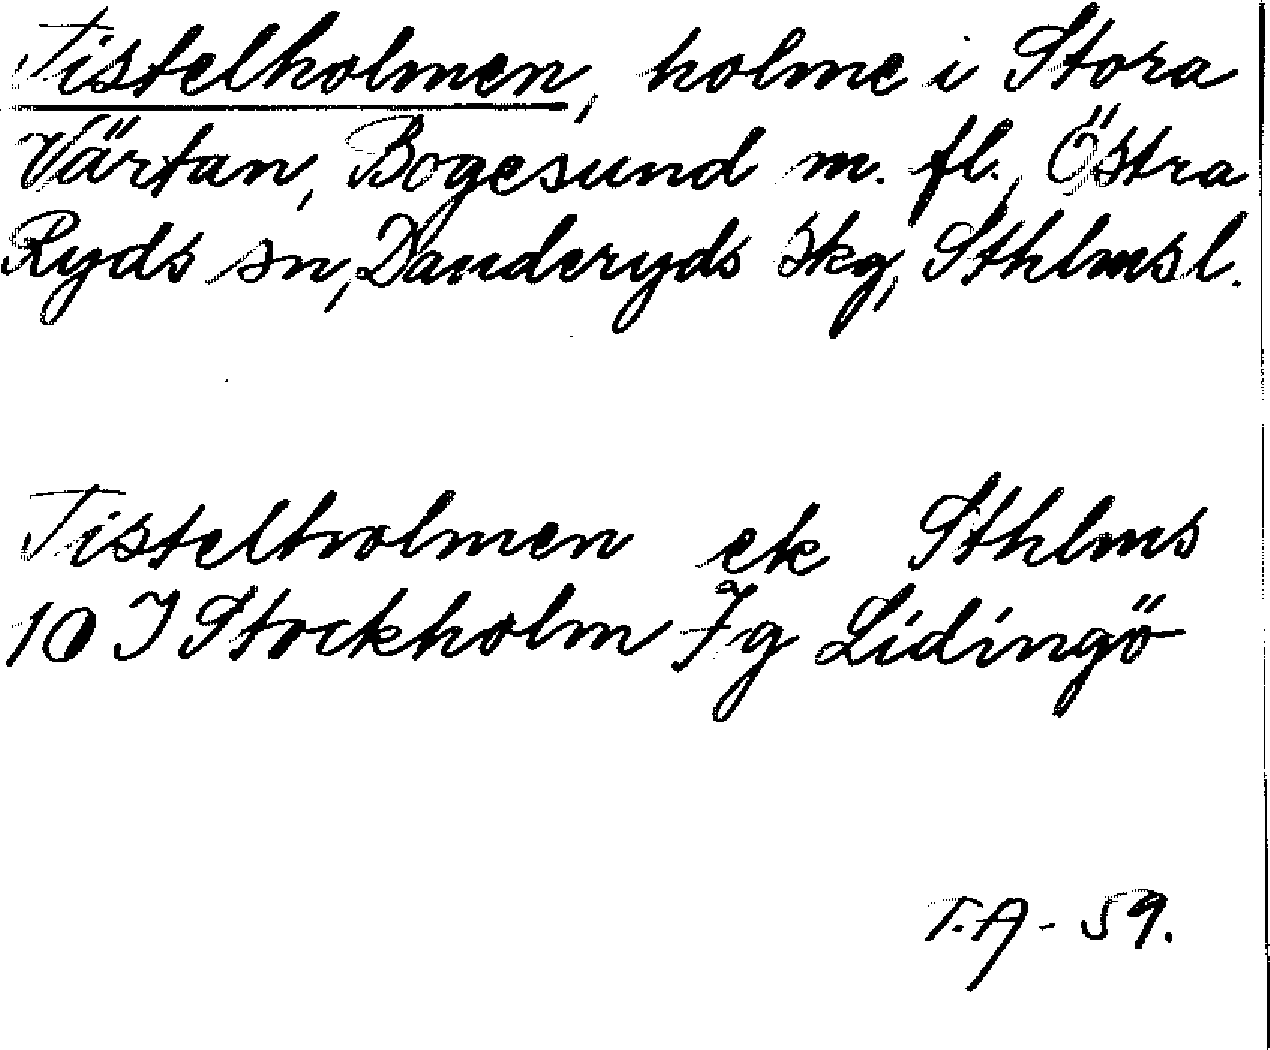 Tistelholmen, holme i Stora
Värtan, Bogesund m. fl., Östra
Ryds sn, Danderyds skg, Sthlmsl.
Tistelholmen ek Sthlms
10 I Stockholm 7g Lidingö
T.A - 59.